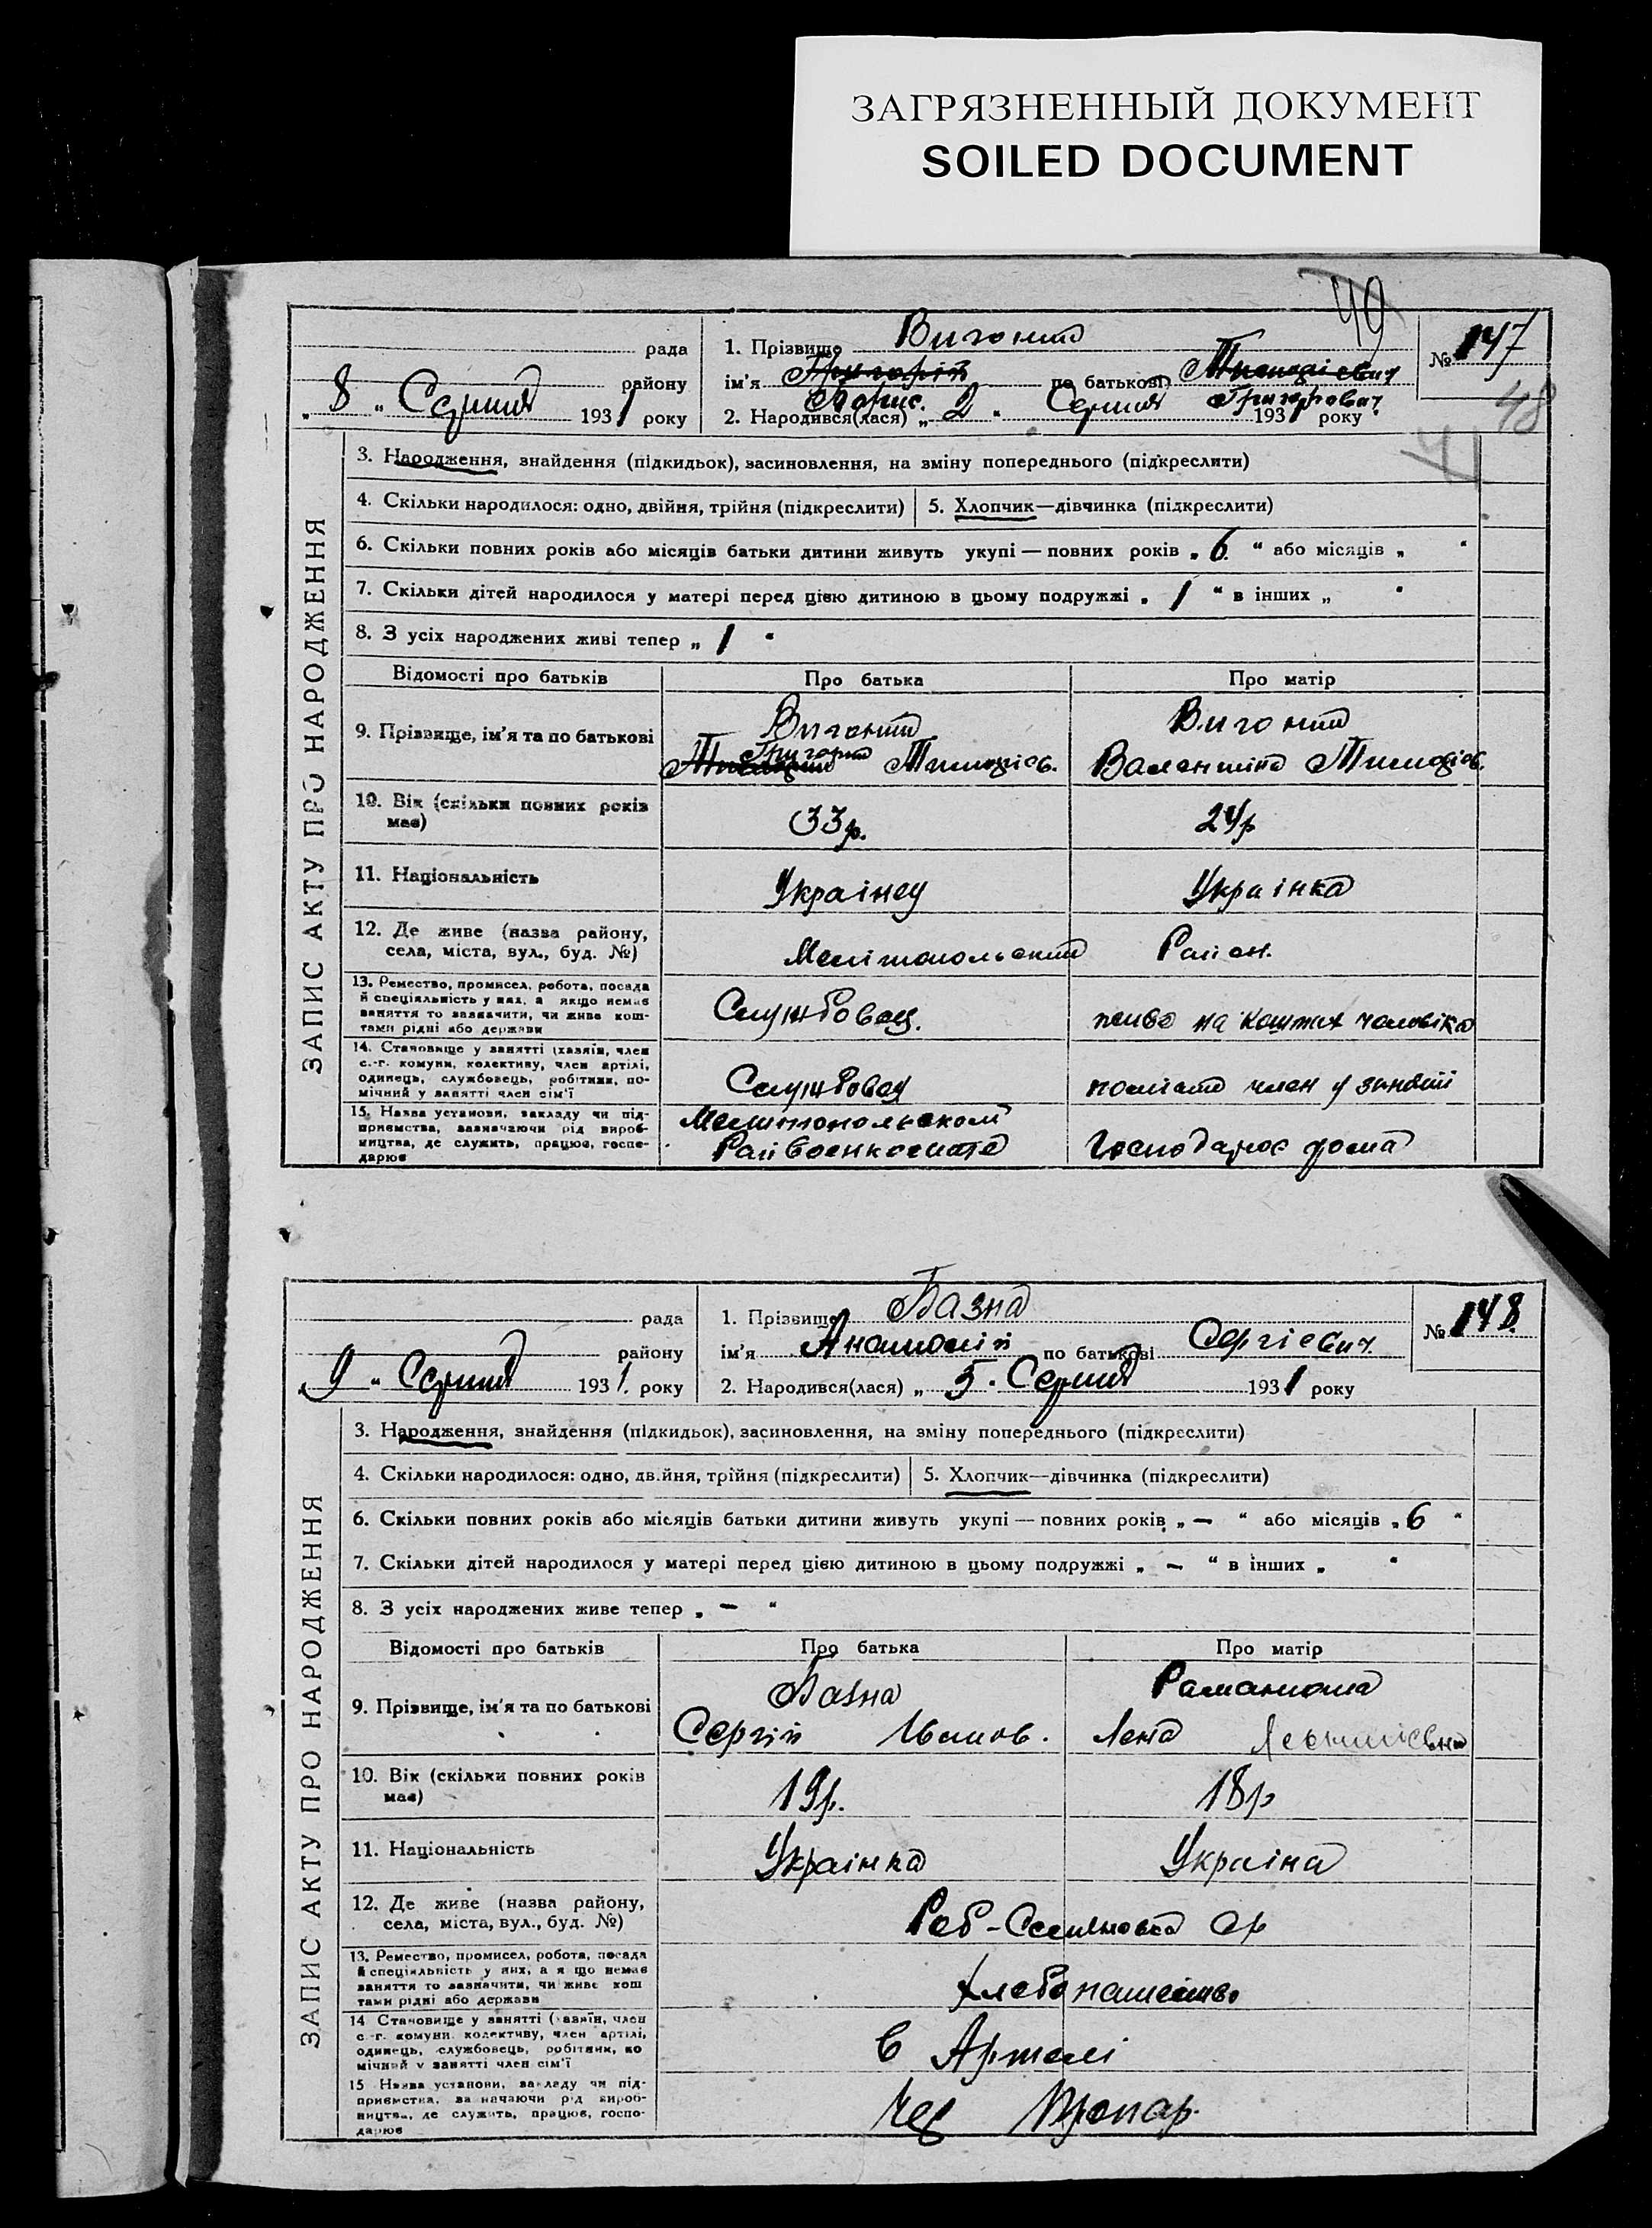 ЗАГРЯЗНЕННЫЙ ДОКУМЕНТ
SOILED DOCUMENT
49
рада
1. Прізвище Вигонит
№ 147
району
ім'я Григорій по батькові Тимофієвич
Борис. Григорович
„ 8 " Серпня 1931 року
2. Народився(лася) „ 2 " Серпня 1931 року
48
ЗАПИС АКТУ ПРО НАРОДЖЕННЯ
3. Народження, знайдення (підкидьок), засиновлення, на зміну попереднього (підкреслити)
4. Скільки народилося: одно, двійня, трійня (підкреслити)
5. Хлопчик—дівчинка (підкреслити)
6. Скільки повних років або місяців батьки дитини живуть укупі — повних років „ 6. " або місяців „ "
7. Скільки дітей народилося у матері перед цією дитиною в цьому подружжі „ 1 " в інших „ "
8. З усіх народжених живі тепер „ 1 "
Відомості про батьків
Про батька
Про матір
9. Прізвище, ім'я та по батькові
Вигонит
Григорит Тимофієв.
Вигонит
Валентина Тимофієв.
10. Вік (скільки повних років має)
33р.
24р
11. Національність
Українец
Українка
12. Де живе (назва району, села, міста, вул., буд. №)
Мелітопольский Район.
13. Ремество, промисел, робота, посада й спеціяльність у них, а якщо немає заняття то зазначити, чи живе коштами рідні або держави
Службовец.
живе на коштах чоловіка
14. Становище у занятті (хазяїн, член с.-г. комуни, колективу, член артілі, одинець, службовець, робітник, помічний у занятті член сім'ї
Службовец
член у
15. Назва установи, закладу чи підприємства, зазначаючи рід виробництва, де служить, працює, господарює
Мелитопольском
Райвоенкомата
Господарює дома
рада
1. Прізвище Базна
№ 148.
району
ім'я Анатолій по батькові Сергієвич
„ 9 " Серпня 1931. року
2. Народився(лася) „ 5 " Серпня 1931 року
ЗАПИС АКТУ ПРО НАРОДЖЕННЯ
3. Народження, знайдення (підкидьок), засиновлення, на зміну попереднього (підкреслити)
4. Скільки народилося: одно, двійня, трійня (підкреслити)
5. Хлопчик—дівчинка (підкреслити)
6. Скільки повних років або місяців батьки дитини живуть укупі — повних років „ — " або місяців „ 6 "
7. Скільки дітей народилося у матері перед цією дитиною в цьому подружжі „ — " в інших „ "
8. З усіх народжених живе тепер „ — "
Відомості про батьків
Про батька
Про матір
9. Прізвище, ім'я та по батькові
Базна
Сергій Іванов.
Лена
10. Вік (скільки повних років має)
19р.
18р
11. Національність
Українка
Україна
12. Де живе (назва району, села, міста, вул., буд. №)
13. Ремество, промисел, робота, посада й спеціяльність у них, а якщо немає заняття то зазначити, чи живе коштами рідні або держави
Хлебопашество
14 Становище у занятті (хазяїн, член с.-г. комуни, колективу, член артілі, одинець, службовець, робітник, помічний у занятті член сім'ї
в Артелі
15 Назва установи, закладу чи підприємства, зазначаючи рід виробництва, де служить, працює, господарює